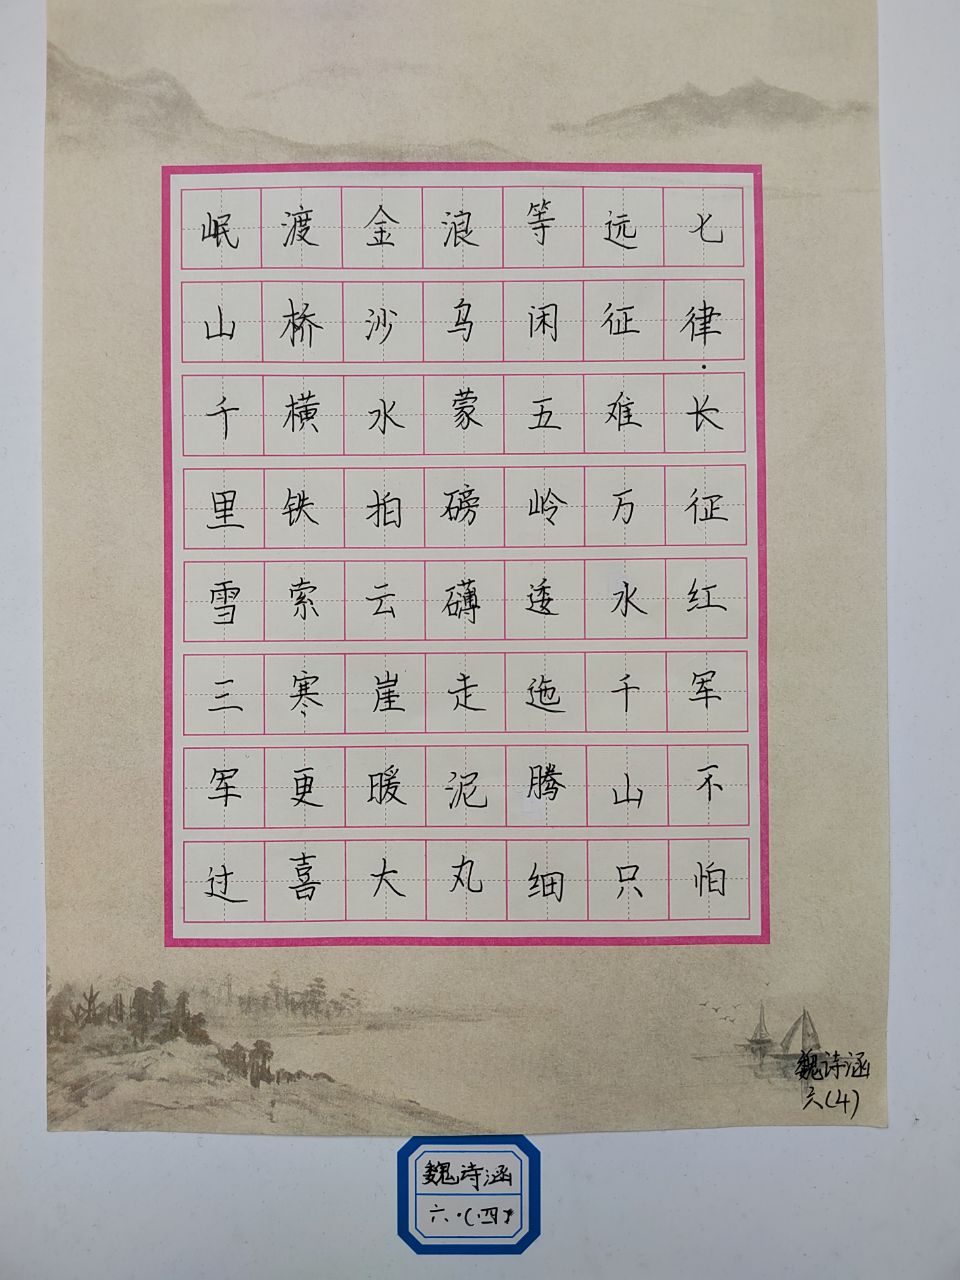 七律·长征红军不怕
远征难万水千山只
等闲五岭逶迤腾细
浪乌蒙磅礴走泥丸
金沙水拍云崖暖大
渡桥横铁索寒更喜
岷山千里雪三军过
魏诗涵
六(4)
魏诗涵
六.(四)